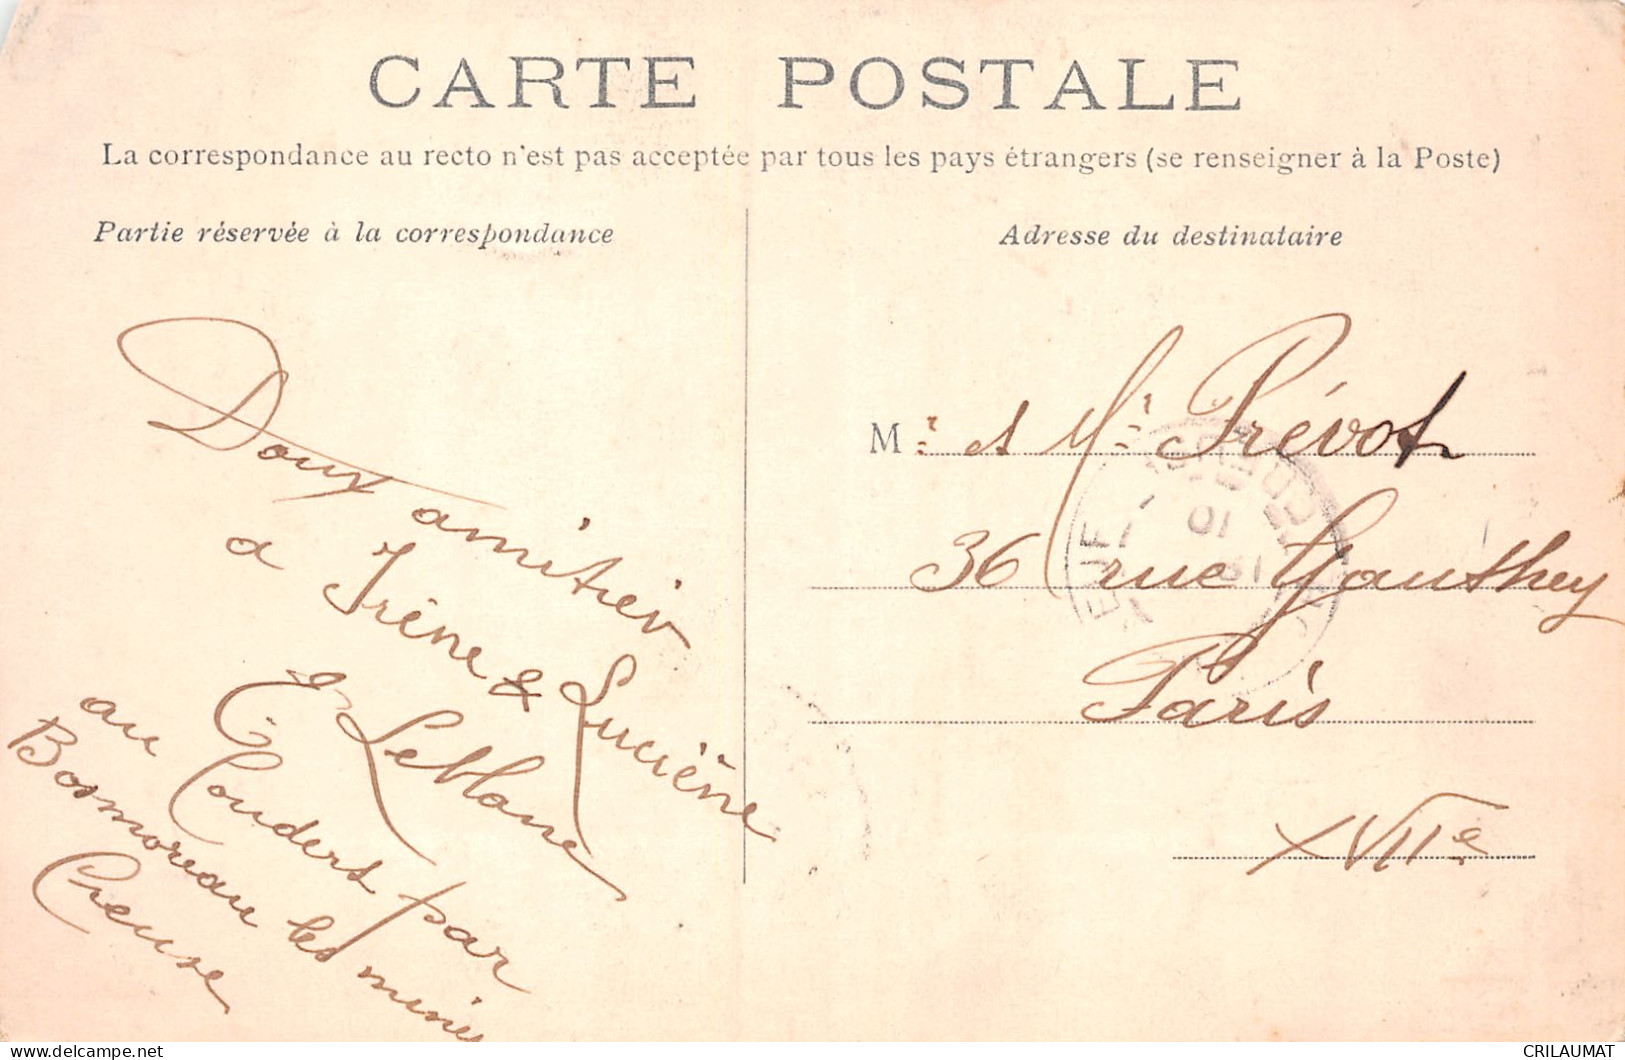 CARTE POSTALE
La correspondance au recto n'est pas acceptée par tous les pays étrangers (se renseigner à la Poste)
Partie réservée à la correspondance
Doux amitiés
a Irène & Luciène
E Leblanc
au Couderts par
Bosmoreau les mines
Creuse
Adresse du destinataire
Mr et Me Prévot
36 rue Gauthey
Paris
XVIIe
delcampe.net
CRILAUMAT